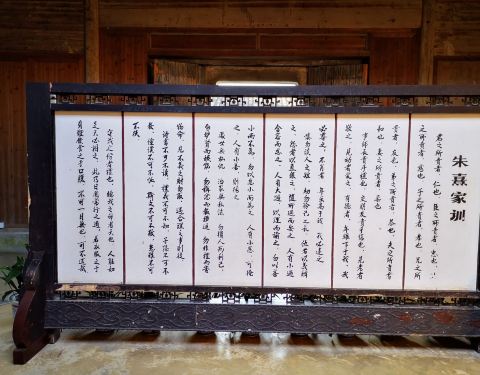 朱熹家訓
君之所贵者 仁也 臣之所贵者 忠也 父
之所贵者 慈也 子之所贵者 孝也 兄之所
贵者 友也 弟之所贵者 恭也 夫之所贵者
和也 妇之所贵者 柔也
事师长贵乎礼也 交朋友贵乎信也 见老者
敬之 见幼者爱之 有德者 年虽下于我 我
必尊之 不肖者 年虽高于我 我必远之
慎勿谈人之短 切勿矜己之长 仇者以义解
之 怨者以直报之 随所遇而安之 人有小过
含容而忍之 人有大过 以理而谕之 勿以善
小而不为 勿以恶小而为之 人有恶 则掩
之 人有善 则扬之
处世无私仇 治家无私法 勿损人而利己
勿妒贤而嫉能 勿称忿而报横逆 勿非礼而害
物命 见不义之财勿取 遇合理之事则从
诗书不可不读 礼义不可不知 子孙不可不
教 童仆不可不恤 斯文不可不敬 患难不可
不扶
守我之分者礼也 听我之命者天也 人能如
是 天必相之 此乃日用常行之道 若衣服之于
身体 饮食之于口腹 不可一日无也 可不慎哉